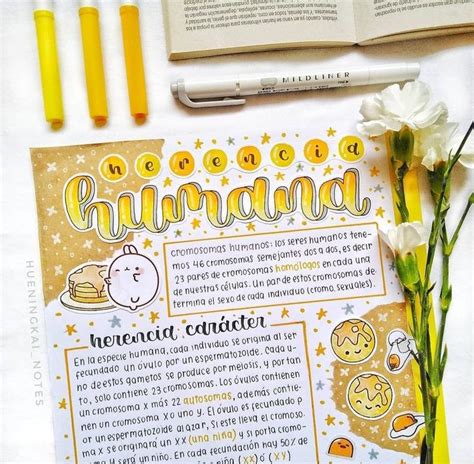 MILDLINER
herencia
humana
cromosomas humanos: los seres humanos tene-
mos 46 cromosomas semejantes dos a dos, es decir
23 pares de cromosomas homólogos en cada una
de nuestras células. Un par de estos cromosomas de-
termina el sexo de cada individuo (cromo. sexuales).
herencia carácter
En la especie humana, cada individuo se origina al ser
fecundado un óvulo por un espermatozoide. Cada u-
no de estos gametos se produce por meiosis, y por tan
to, solo contiene 23 cromosomas. Los óvulos contienen
un cromosoma x más 22 autosomas, además contie-
nen un cromosoma x o uno y. El óvulo es fecundado p
or un espermatozoide al azar, Si este lleva el cromoso-
ma x se originará un XX (una niña) y si porta
XY (un niño). En cada fecundación hay 50% de
XX o XY)
HUENINGKAI_NOTES